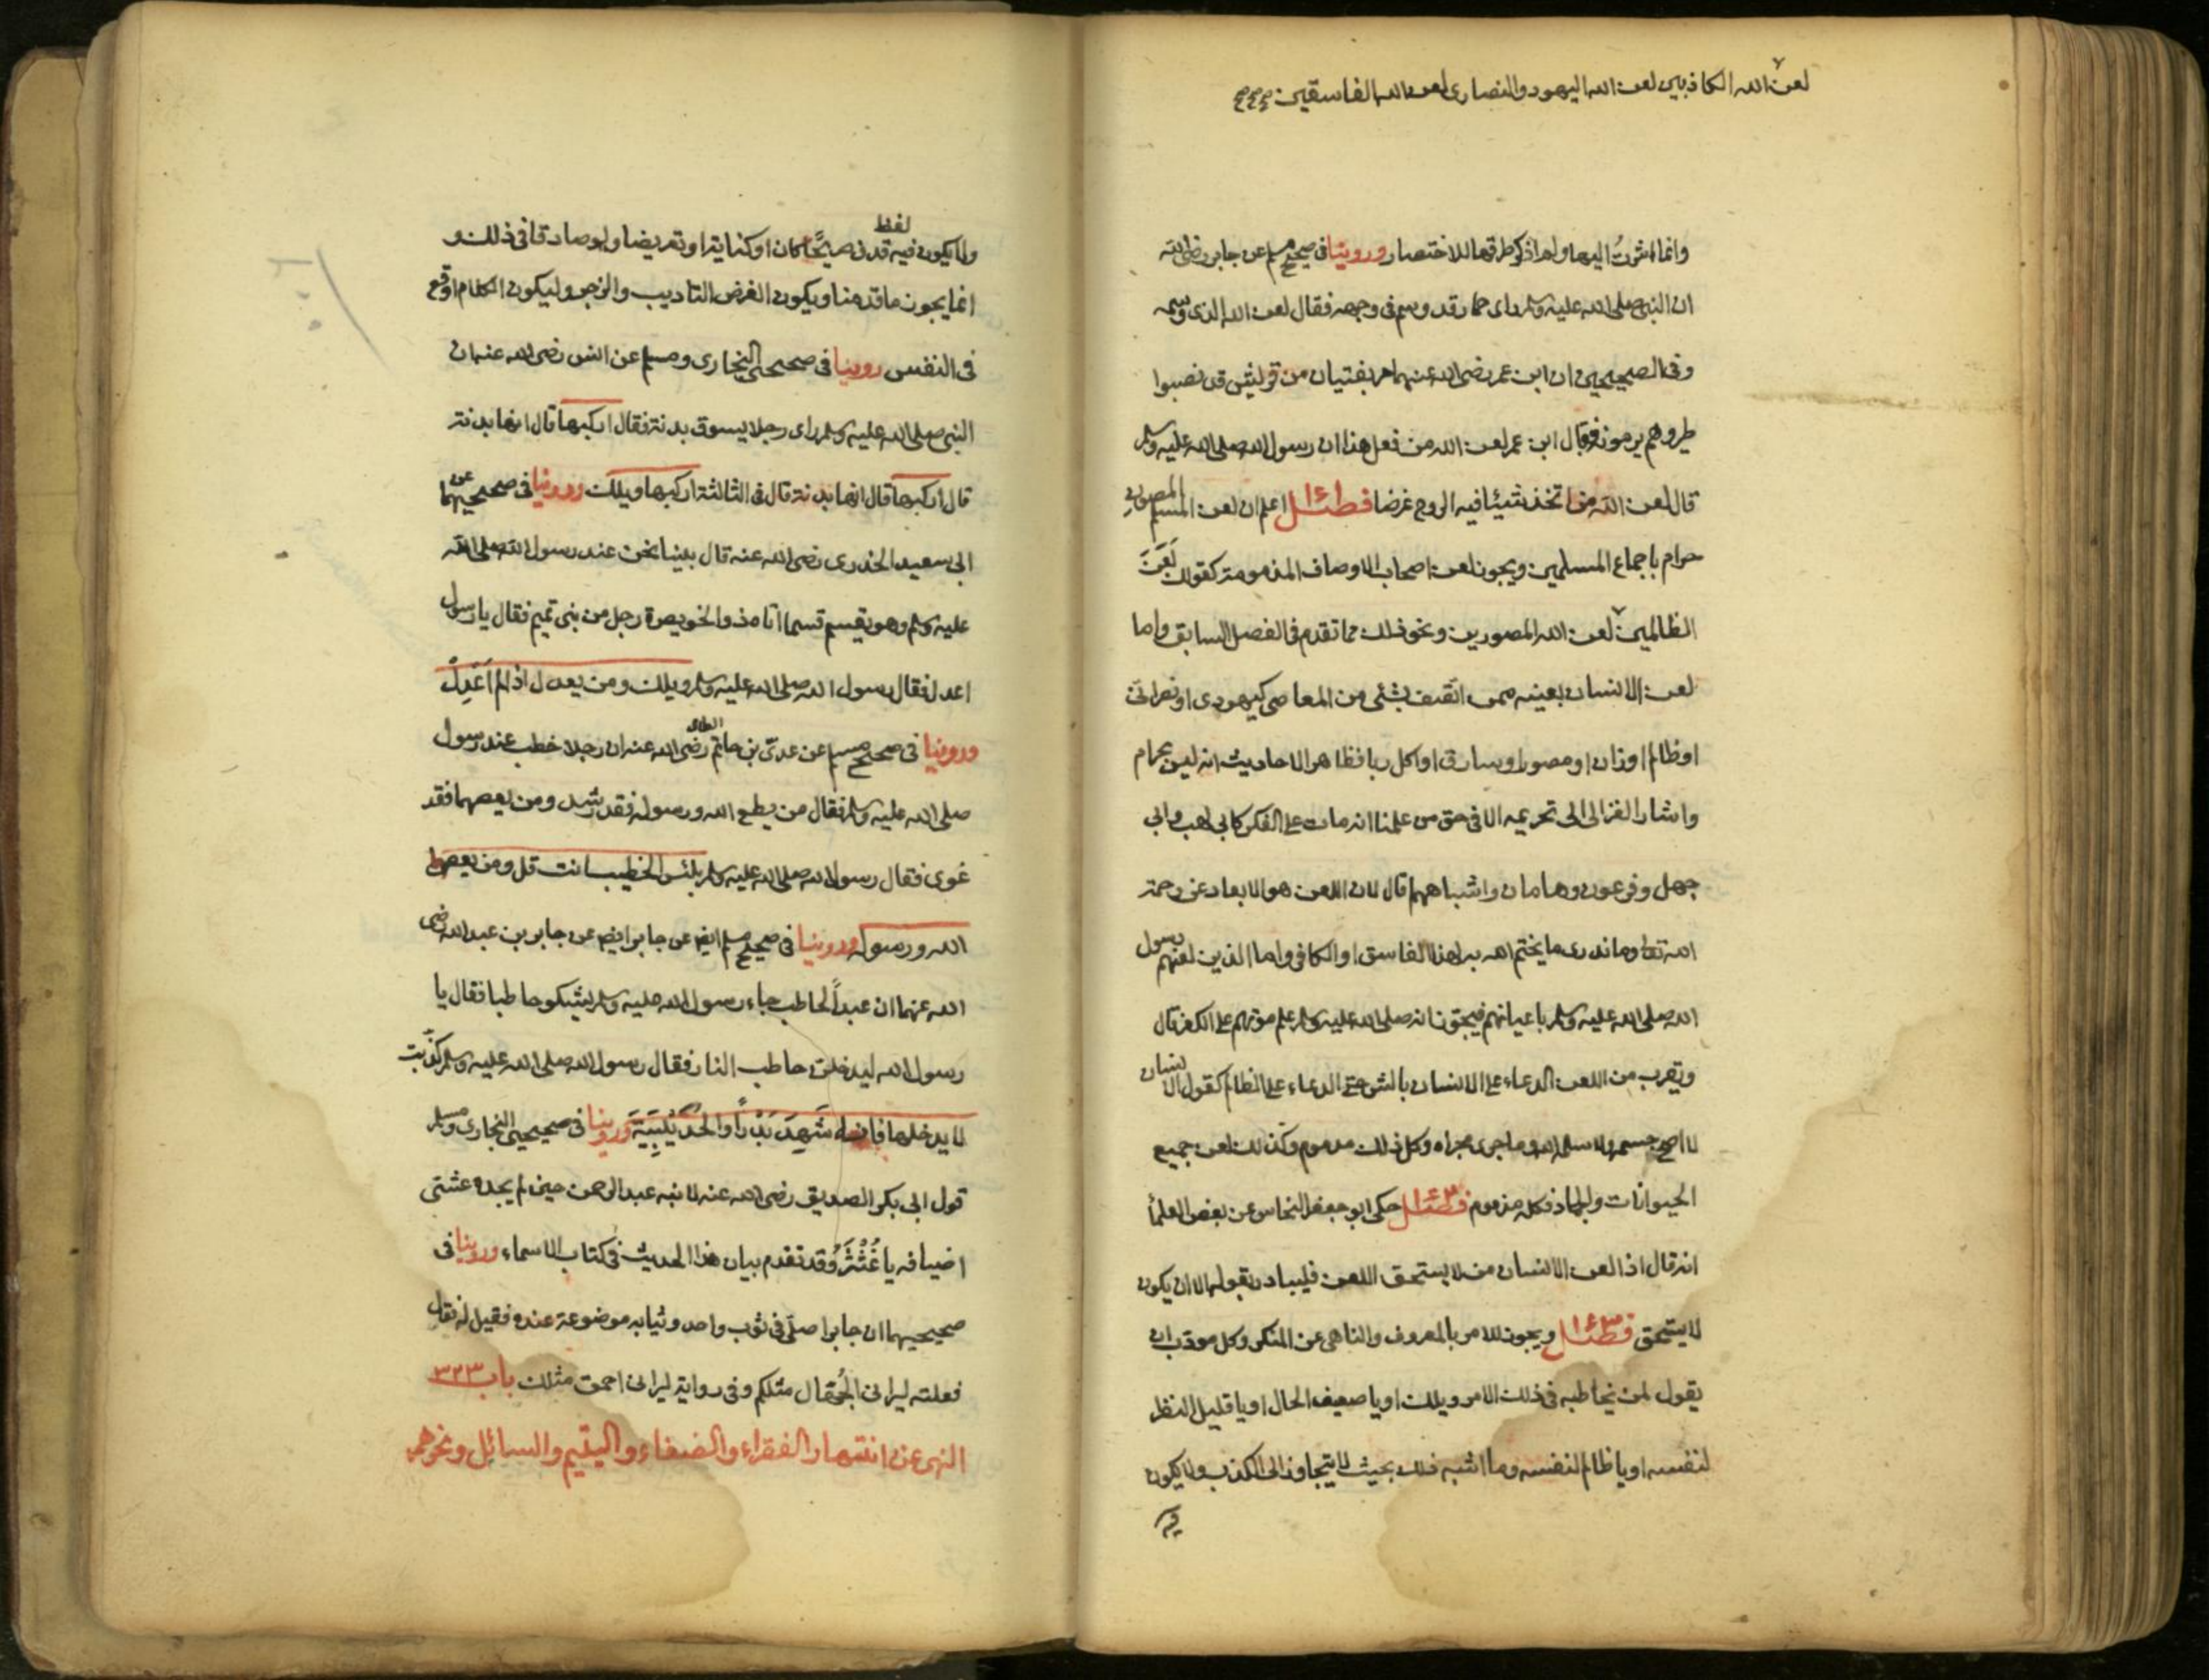 لعن الله الكاذبين لعن الله اليهود والنصارى لعن الله الفاسقين صح صح صح
وانما اشرت اليها ولم اذكر طرقها للاختصار وروينا فى صحيح مسلم عن جابر رضى الله
ان النبى صلى الله عليه وسلم راى حمارا قد وسم فى وجهه فقال لعن الله الذى وسمه
وفى الصحيحين ان ابن عمر رضى الله عنهما مر بفتيان من قريش قد نصبوا
طيرا وهم يرمونه فقال ابن عمر لعن الله من فعل هذا ان رسول الله صلى الله عليه وسلم
قال لعن الله من اتخذ شيئا فيه الروح غرضا فصل اعلم ان لعن المسلم المصون
حرام باجماع المسلمين ويجوز لعن اصحاب الاوصاف المذمومة كقولك لَعَنَ
الظالمين لعن الله المصورين ونحو ذلك مما تقدم فى الفصل السابق واما
لعن الانسان بعينه ممن اتصف بشئ من المعاصى كيهودى او نصرانى
او ظالم او زان او مصور او سارق او اكل ربا فظاهر الاحاديث انه ليس بحرام
واشار الغزالى الى تحريمه الا فى حق من علمنا انه مات على الكفر كابى لهب وابى
جهل وفرعون وهامان واشباههم قال لان اللعن هو الابعاد عن رحمة
الله تعالى وما ندرى ما يختم الله به لهذا الفاسق او الكافر واما الذين لعنهم رسول
الله صلى الله عليه وسلم باعيانهم فيجوز انه صلى الله عليه وسلم علم موتهم على الكفر قال
ويقرب من اللعن الدعاء على الانسان بالشر حتى الدعاء على الظالم كقول الانسان
لا اصح جسمه ولا سلمه الله وما جرى مجراه وكل ذلك مذموم وكذلك لعن جميع
الحيوانات والجماد فكله مذموم فصل حكى ابو جعفر النحاس عن بعض العلماء
انه قال اذا لعن الانسان من لا يستحق اللعن فليبادر بقوله الا ان يكون
لا يستحق فصل ويجوز للامر بالمعروف والناهى عن المنكر وكل مؤدب ان
يقول لمن يخاطبه فى ذلك الامر ويلك او يا ضعيف الحال او يا قليل النظر
لنفسه او يا ظالم لنفسه وما اشبه ذلك بحيث لا يتجاوز الى الكذب ولا يكون
فيه
ولا يكون فيه لفظ قذف صريحًا كان او كناية او تعريضا ولو صادقا فى ذلك و
انما يجوز ما قدمنا ويكون الغرض التاديب والزجر وليكون الكلام اوقع
فى النفس روينا فى صحيحى البخارى ومسلم عن انس رضى الله عنه ان
النبى صلى الله عليه وسلم راى رجلا يسوق بدنة فقال اركبها قال انها بدنة
قال اركبها قال انها بدنة قال فى الثالثة اركبها ويلك وروينا فى صحيحيهما عن
ابى سعيد الخدرى رضى الله عنه قال بينا نحن عند رسول الله صلى الله
عليه وسلم وهو يقسم قسما اتاه ذو الخويصرة رجل من بنى تميم فقال يا رسول
اعدل فقال رسول الله صلى الله عليه وسلم ويلك ومن يعدل اذا لم اَعْدِلْ
وروينا فى صحيح مسلم عن عدى بن حاتم الطائى رضى الله عنه ان رجلا خطب عند رسول
صلى الله عليه وسلم فقال من يطع الله ورسوله فقد رشد ومن يعصهما فقد
غوى فقال رسول الله صلى الله عليه وسلم بئس الخطيب انت قل ومن يعص
الله ورسوله وروينا فى صحيح مسلم ايضا عن جابر ايضا عن جابر بن عبد الله رضى
الله عنهما ان عبدًا لحاطب جاء رسول الله صلى الله عليه وسلم يشكو حاطبا فقال يا
رسول الله ليدخلن حاطب النار فقال رسول الله صلى الله عليه وسلم كذبت
لا يدخلها فانه شَهِدَ بَدْرًا والحُدَيْبِيَةَ وروينا فى صحيحى البخارى ومسلم
قول ابى بكر الصديق رضى الله عنه لابنه عبد الرحمن حين لم يجده عشى
اضيافه يا غُنْثَرُ وقد تقدم بيان هذا الحديث فى كتاب الاسماء وروينا فى
صحيحيهما ان جابرا صلى فى ثوب واحد وثيابه موضوعة عنده فقيل له
فعلته ليرانى الجهال مثلكم وفى رواية ليرانى احمق مثلك باب ٣٢٣
النهى عن انتهار الفقراء والضعفاء واليتيم والسائل ونحوهم